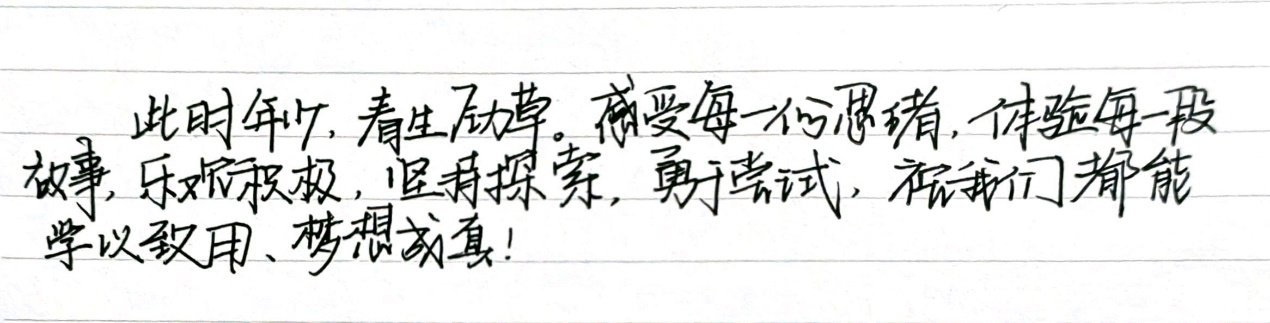 此时年少,春生劲草。感受每一份思绪,体验每一段
故事,乐观积极,坚持探索,勇于尝试,祝我们都能
学以致用、梦想成真!